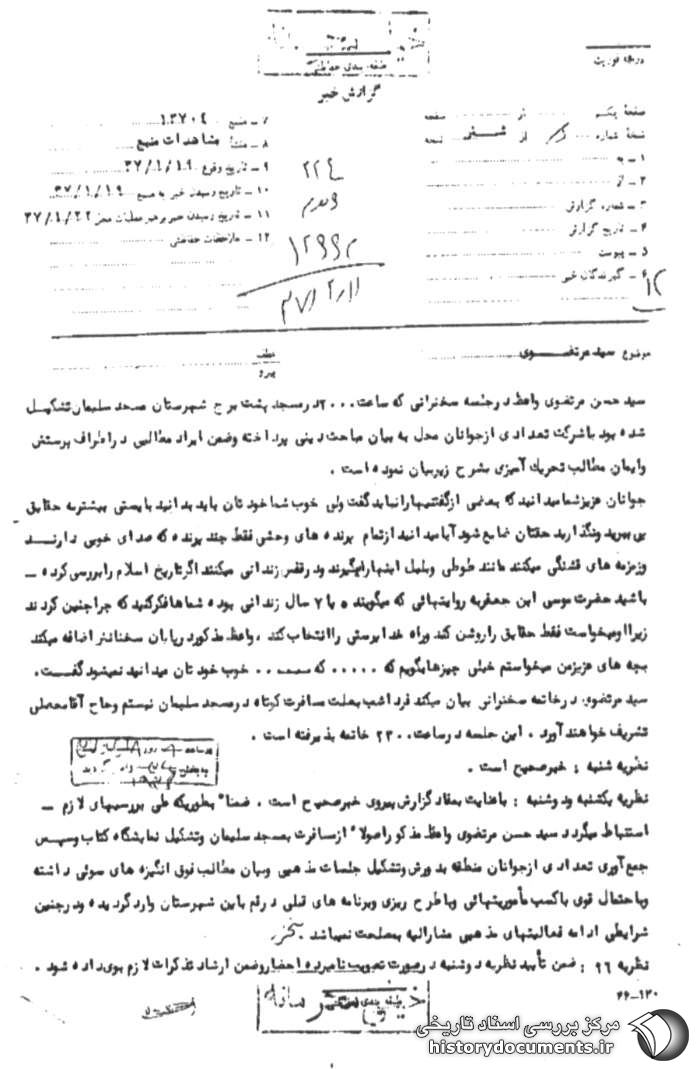 خیلی محرمانه
طبقه بندی حفاظتی
درجه فوریت
گزارش خبر
صفحهٔ یکم از صفحه
نسخهٔ شماره از شش نسخه
۱ ـ به
۲ ـ از
۳ ـ شماره گزارش
۴ ـ تاریخ گزارش
۵ ـ پیوست
۶ ـ گیرندگان خبر
۷ ـ منبع ۱۳۷۰۴
۸ ـ منشأ مشاهدات منبع
۹ ـ تاریخ وقوع ۳۷/۱/۱۹
۱۰ ـ تاریخ رسیدن خبر به منبع ۳۷/۱/۱۹
۱۱ ـ تاریخ رسیدن خبر برهبر عملیات محل ۳۷/۱/۲۲
۱۲ ـ ملاحظات حفاظتی
۲۲۴
۱۲۹۹۲
۳۷/۲/۱۱
۱۲
موضوع سید مرتضوی
عطف
پیرو
سید حسن مرتضوی واعظ در جلسه سخنرانی که ساعت ۲۰۰۰ در مسجد پشت برج شهرستان مسجد سلیمان تشکیل
شده بود با شرکت تعدادی از جوانان محل به بیان مباحث دینی پرداخته وضمن ایراد مطالبی در اطراف پرستش
وایمان مطالب تحریک آمیزی بشرح زیر بیان نموده است .
جوانان عزیز شما میدانید که بعضی از گفتنیها را نباید گفت ولی خوب شما خودتان باید بدانید بایستی بیشتر به حقایق
پی ببرید ونگذارید حقتان ضایع شود آیا میدانید از تمام پرنده های وحشی فقط چند پرنده که صدای خوبی دارنـد
وزمزمه های قشنگی میکنند مانند طوطی وبلبل اینها را میگیرند ودر قفس زندانی میکنند اگر تاریخ اسلام را بررسی کرده ـ
باشید حضرت موسی ابن جعفر به روایتهائی که میگویند ۵ یا ۷ سال زندانی بوده شماها فکر کنید که چرا چنین کردند
زیرا او میخواست فقط حقایق را روشن کند وراه خدا پرستی را انتخاب کند ، واعظ مذکور در پایان سخنانش اضافه میکند
بچه های عزیز من میخواستم خیلی چیزها بگویم که ..... که ..... خوب خودتان میدانید نمیشود گفـت.
سید مرتضوی در خاتمه سخنرانی بیان میکند فردا شب بعلت مسافرت کوتاه در مسجد سلیمان نیستم وحاج آقا مصلی
تشریف خواهند آورد . این جلسه در ساعت ۲۳۰۰ خاتمه پذیرفته است .
نظریه شنبه : خبر صحیح است .
نظریه یکشنبه ودوشنبه : با عنایت بمفاد گزارش پیروی خبر صحیح است . ضمناً بطوریکه طی بررسیهای لازم ـ
استنباط میگردد سید حسن مرتضوی واعظ مذکور اصولاً از مسافرت بمسجد سلیمان وتشکیل نمایشگاه کتاب وسپس
جمع آوری تعدادی از جوانان منطقه بدورش وتشکیل جلسات مذهبی وبیان مطالب فوق انگیزه های سوئی داشته
وباحتمال قوی با کسب مأموریتهائی وبا طرح ریزی وبرنامه های قبلی در قم باین شهرستان وارد گردیده ودر چنین
شرایطی ادامه فعالیتهای مذهبی مشارالیه بمصلحت نمیباشد .
نظریه ۲۶ : ضمن تأیید نظریه دوشنبه در صورت تصویب نامبرده احضار وضمن ارشاد تذکرات لازم بوی داده شود .
۶۶-۱۳۰
خیلی محرمانه
مرکز بررسی اسناد تاریخی
historydocuments.ir